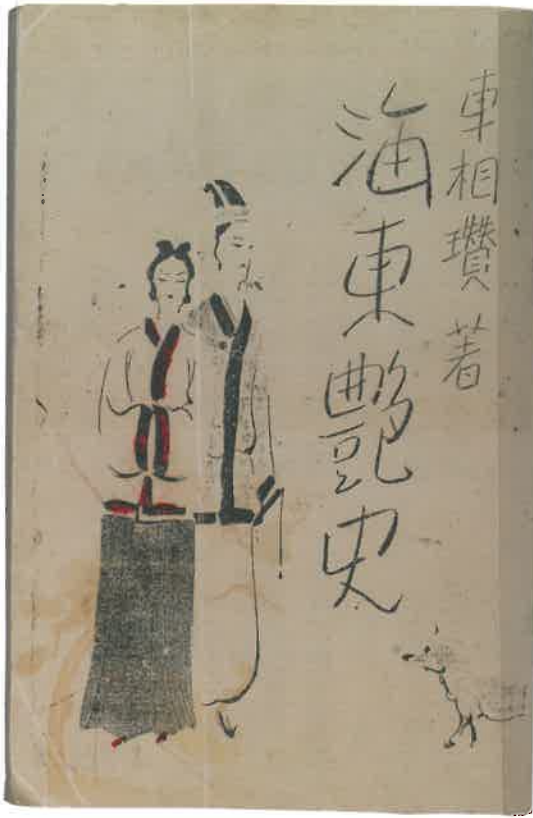 車相瓚 著
海東艶史